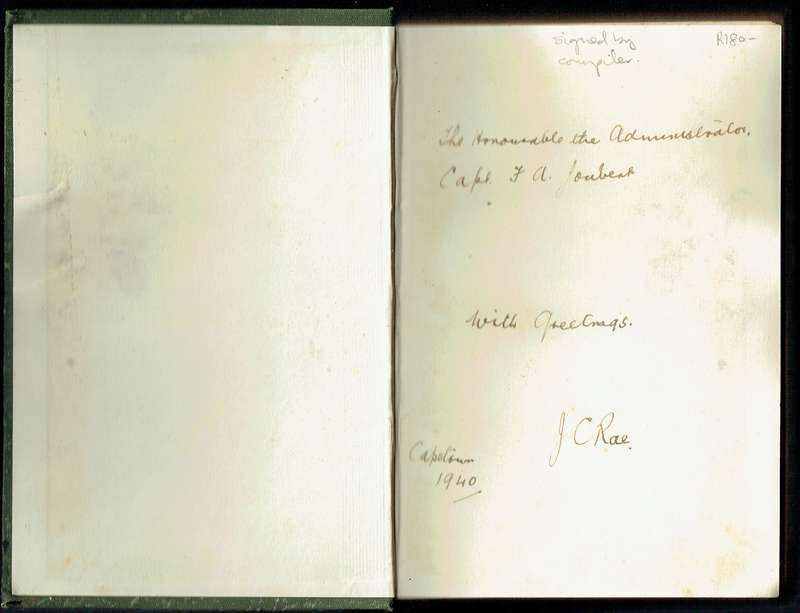 signed by
compiler.
R180-
The Honourable the Administrator.
Capt. F A. Joubert
With Greetings.
J C Rae.
Capetown
1940